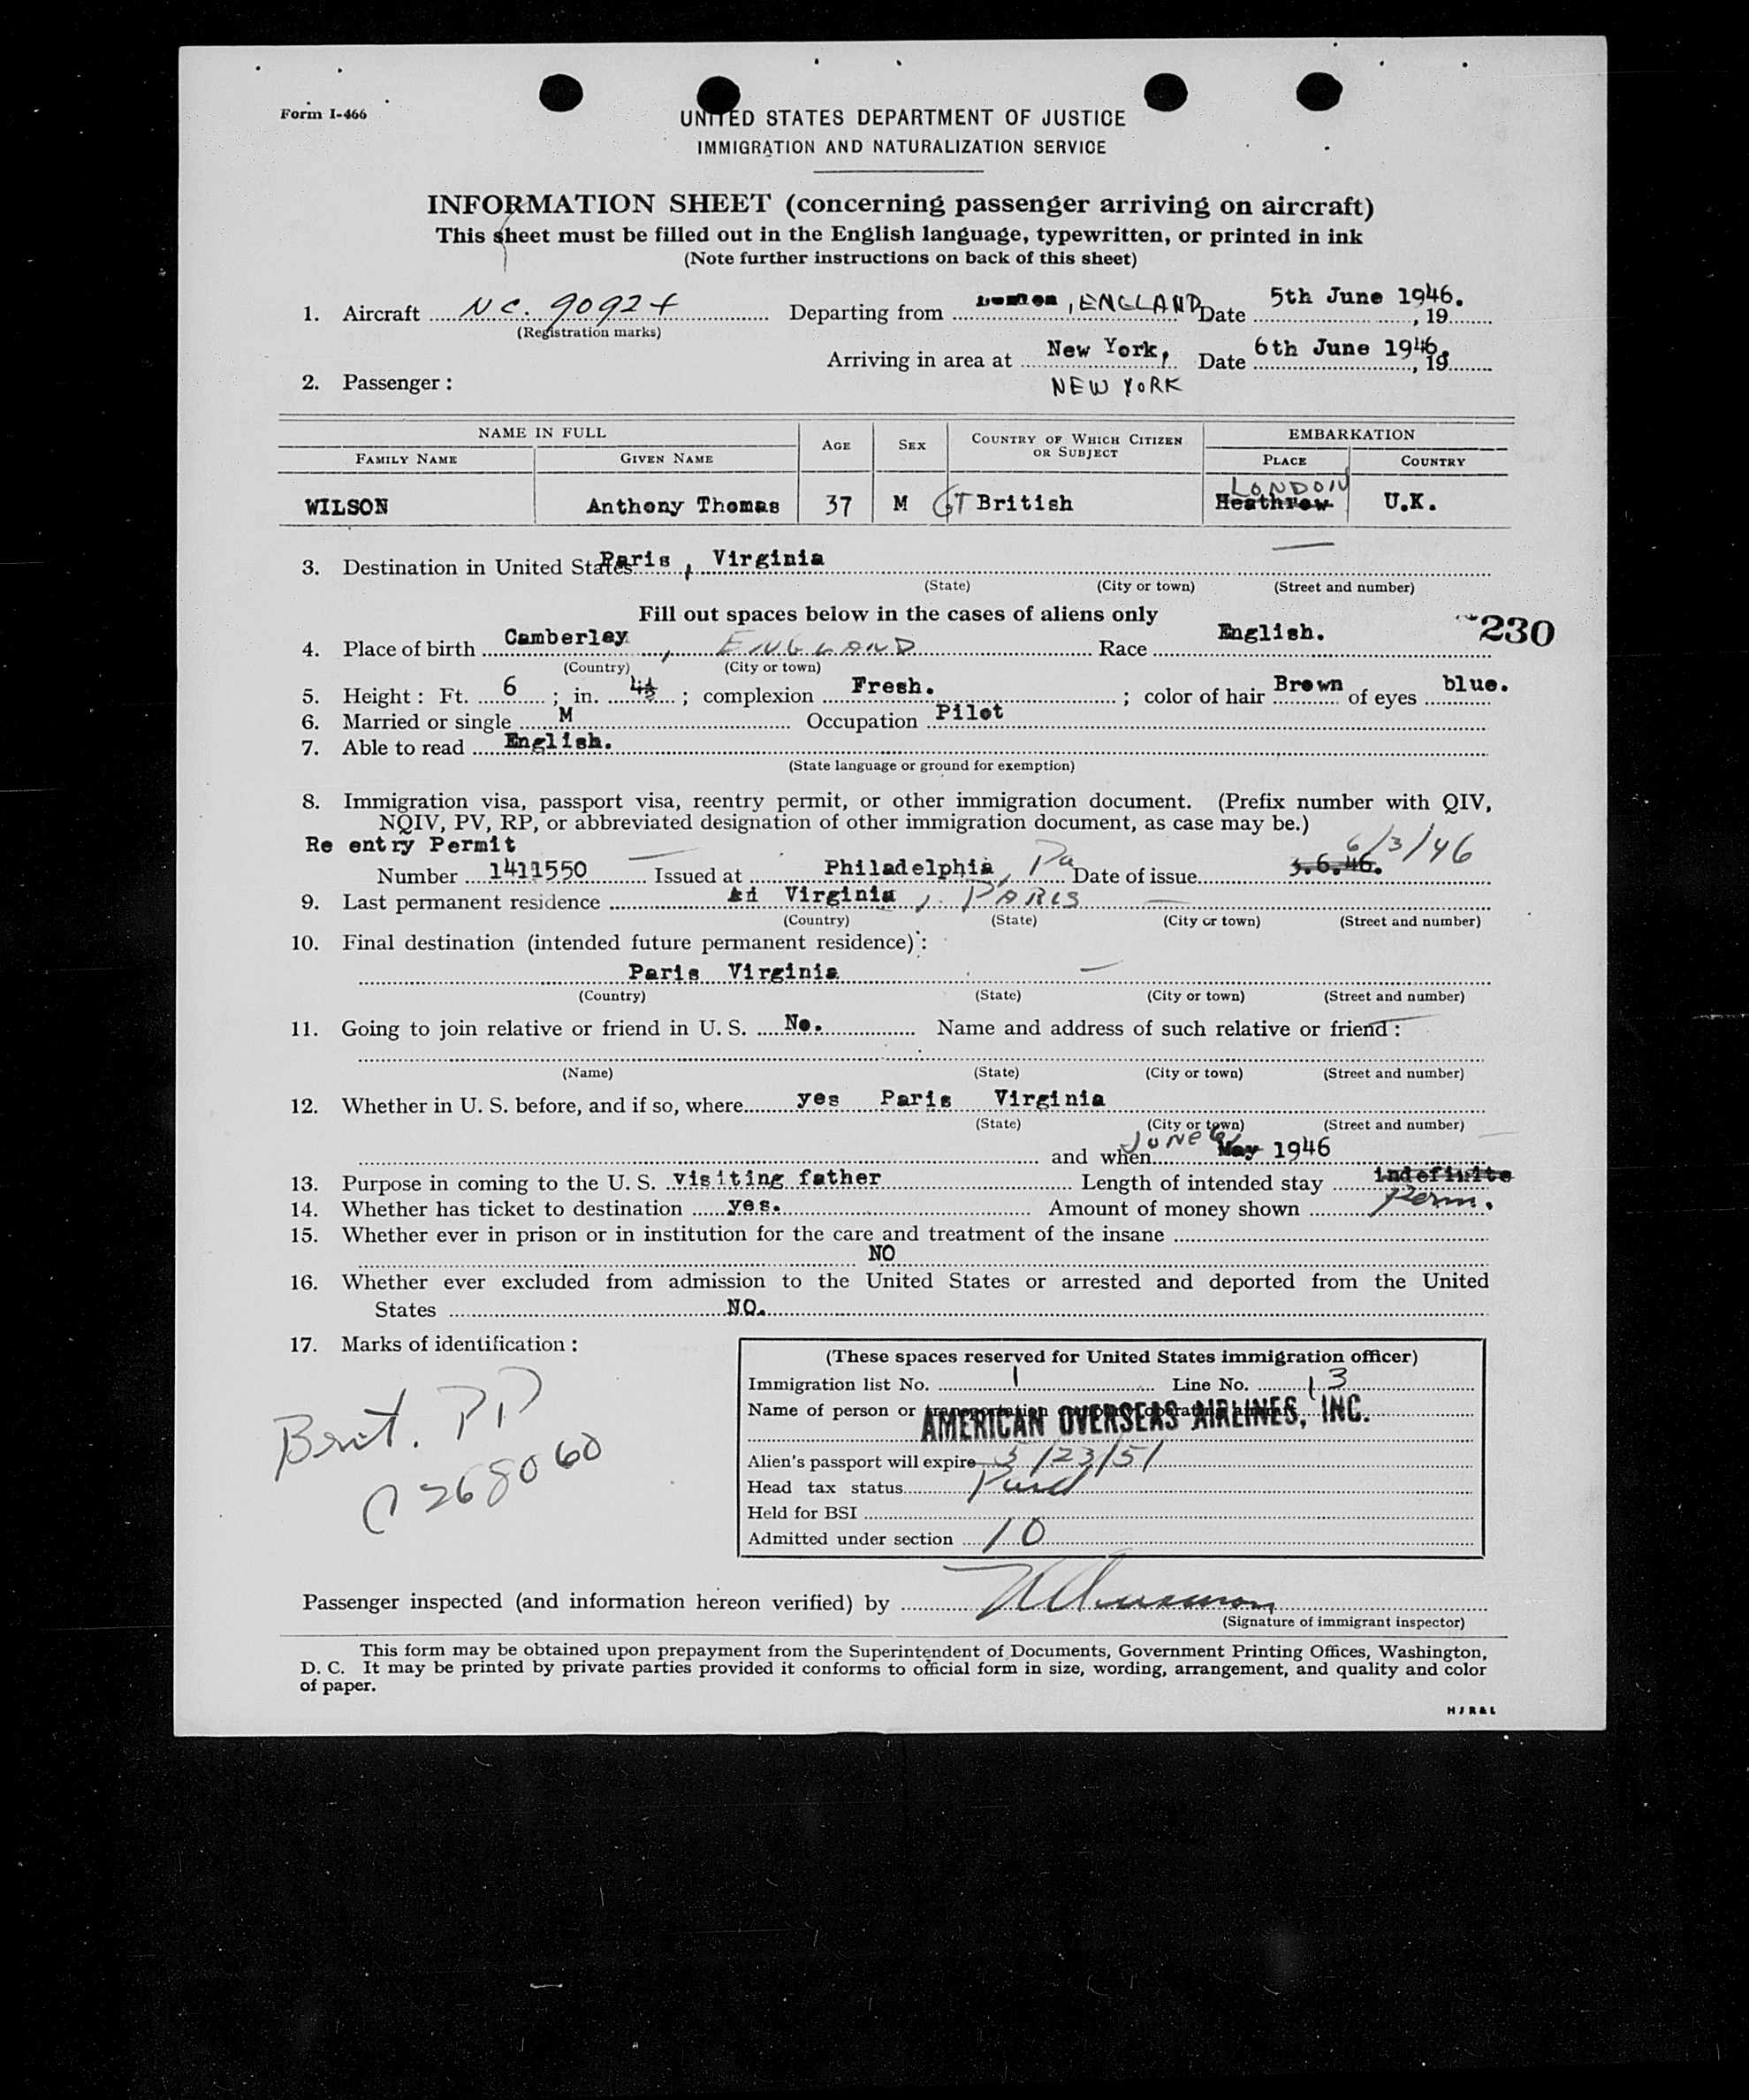 Form I-466
UNITED STATES DEPARTMENT OF JUSTICE
IMMIGRATION AND NATURALIZATION SERVICE
INFORMATION SHEET (concerning passenger arriving on aircraft)
This sheet must be filled out in the English language, typewritten, or printed in ink
(Note further instructions on back of this sheet)
1. Aircraft NC. 9092 Departing from London, ENGLAND Date 5th June 1946. , 19
(Registration marks)
Arriving in area at New York, Date 6th June 1946. , 19
2. Passenger : NEW YORK
NAME IN FULL AGE SEX COUNTRY OF WHICH CITIZEN OR SUBJECT EMBARKATION
FAMILY NAME GIVEN NAME PLACE COUNTRY
LONDON
WILSON Anthony Thomas 37 M GT British Heathrow U.K.
3. Destination in United States Paris, Virginia
(State) (City or town) (Street and number)
Fill out spaces below in the cases of aliens only
230
4. Place of birth Camberley, ENGLAND Race English.
(Country) (City or town)
5. Height : Ft. 6 ; in. 4½ ; complexion Fresh. ; color of hair Brown of eyes blue.
6. Married or single M Occupation Pilot
7. Able to read English.
(State language or ground for exemption)
8. Immigration visa, passport visa, reentry permit, or other immigration document. (Prefix number with QIV,
NQIV, PV, RP, or abbreviated designation of other immigration document, as case may be.)
Re entry Permit 6/3/46
Number 1411550 Issued at Philadelphia, Pa Date of issue 3.6.46.
9. Last permanent residence Virginia, PARIS
(Country) (State) (City or town) (Street and number)
10. Final destination (intended future permanent residence) :
Paris Virginia
(Country) (State) (City or town) (Street and number)
11. Going to join relative or friend in U. S. No. Name and address of such relative or friend :
(Name) (State) (City or town) (Street and number)
12. Whether in U. S. before, and if so, where yes Paris Virginia
(State) (City or town) (Street and number)
JUNE
and when May 1946
13. Purpose in coming to the U. S. visiting father Length of intended stay indefinite
Perm.
14. Whether has ticket to destination yes. Amount of money shown
15. Whether ever in prison or in institution for the care and treatment of the insane
NO
16. Whether ever excluded from admission to the United States or arrested and deported from the United
States NO.
17. Marks of identification :
Brit. PP
C 268060
(These spaces reserved for United States immigration officer)
Immigration list No. 1 Line No. 13
Name of person or transportation company operating aircraft
AMERICAN OVERSEAS AIRLINES, INC.
Alien's passport will expire 5/23/51
Head tax status Paid
Held for BSI
Admitted under section 10
Passenger inspected (and information hereon verified) by
(Signature of immigrant inspector)
This form may be obtained upon prepayment from the Superintendent of Documents, Government Printing Offices, Washington,
D. C. It may be printed by private parties provided it conforms to official form in size, wording, arrangement, and quality and color
of paper.
H J R & L